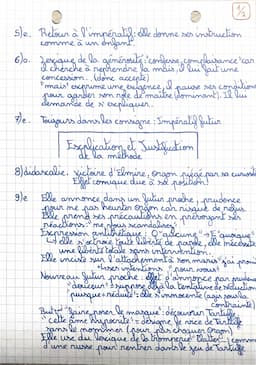 1/2
5)e. Retour à l'impératif: elle donne ses instruction
comme à un enfant.
6)o. Lexique de la générosité "confesse, complaisance" car
il cherche à reprendre la main, il lui fait une
concession.. (donc accepte)
"mais" exprime une exigence, il pause ses conditions
pour garder son rôle de maître (dominant). Il lui
demande de s'expliquer.
7)e. Toujours dans les consigne: Impératif futur
Explication et Justification
de la méthode
8) didascalie: victoire d'Elmire, Orgon piégé par sa curiosité
Effet comique due à sa position!
9)e Elle annonce dans un futur proche, prudence
pour ne pas heurter Orgon car risque de refus.
Elle prend ses précautions en prévoyant ses
réactions: "ne vous scandalisez"
Expression antithétique: "aucune" → "quoique"
↳ elle s'octroie toute liberté de parole, elle nécessite
une liberté totale sans intervention.
Elle insiste sur l'attachement à son mari: j'ai promis
pour vous"
Nouveau futur proche: effet d'annonce par prudence
"douceur" suppose déjà la tentative de séduction
puisque "réduite": elle s'innocente (agis sous la
contrainte)
But: "faire poser le masque": découvrir Tartuffe
"cette âme hypocrite": désigne le vice de Tartuffe
sans le nommer (pour pas choquer Orgon)
Elle use du lexique de la tromperie "flatter"
d'une ruse pour rentrer dans le jeu de Tartuffe